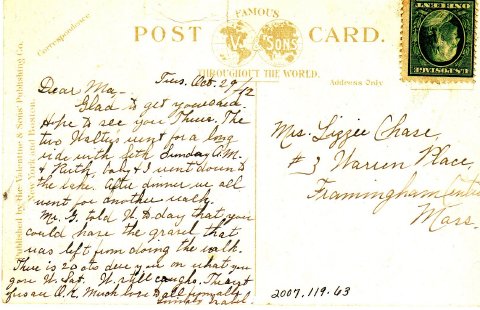 FAMOUS
POST CARD.
V. & SONS
THROUGHOUT THE WORLD.
Address Only
Published by The Valentine & Sons' Publishing Co.
New York and Boston.
ONE CENT
U.S. POSTAGE
Tues. Oct. 29/12
Dear Ma,-
Glad to get your card.
Hope to see you Thurs. The
two Walty's went for a long
ride with Seth Sunday A.M.
& Ruth, baby & I went down to
the lake. After dinner we all
went for another walk.
Mr. G. told W. D day that you
could have the gravel that
was left from doing the walk.
There is 20 cts due you on what you
gave W. Sat. W. still coughs. The rest
of us are O.K. Much love to all from all
Mrs. Lizzie Chase,
# 3 Warren Place,
Framingham Centre
Mass.
2007.119.63